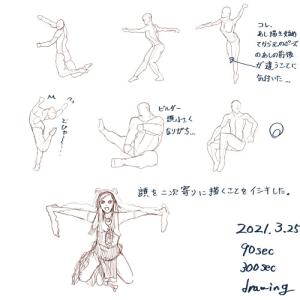 コレ、
あし描き始め
てから元のポーズ
のあしの前後
が違うことに
気付いた…
どひゃ〜!
ビルダー
頭小さく
なりがち…
顔を二次寄りに描くことをイシキした。
2021.3.25
90sec
300sec
drawing